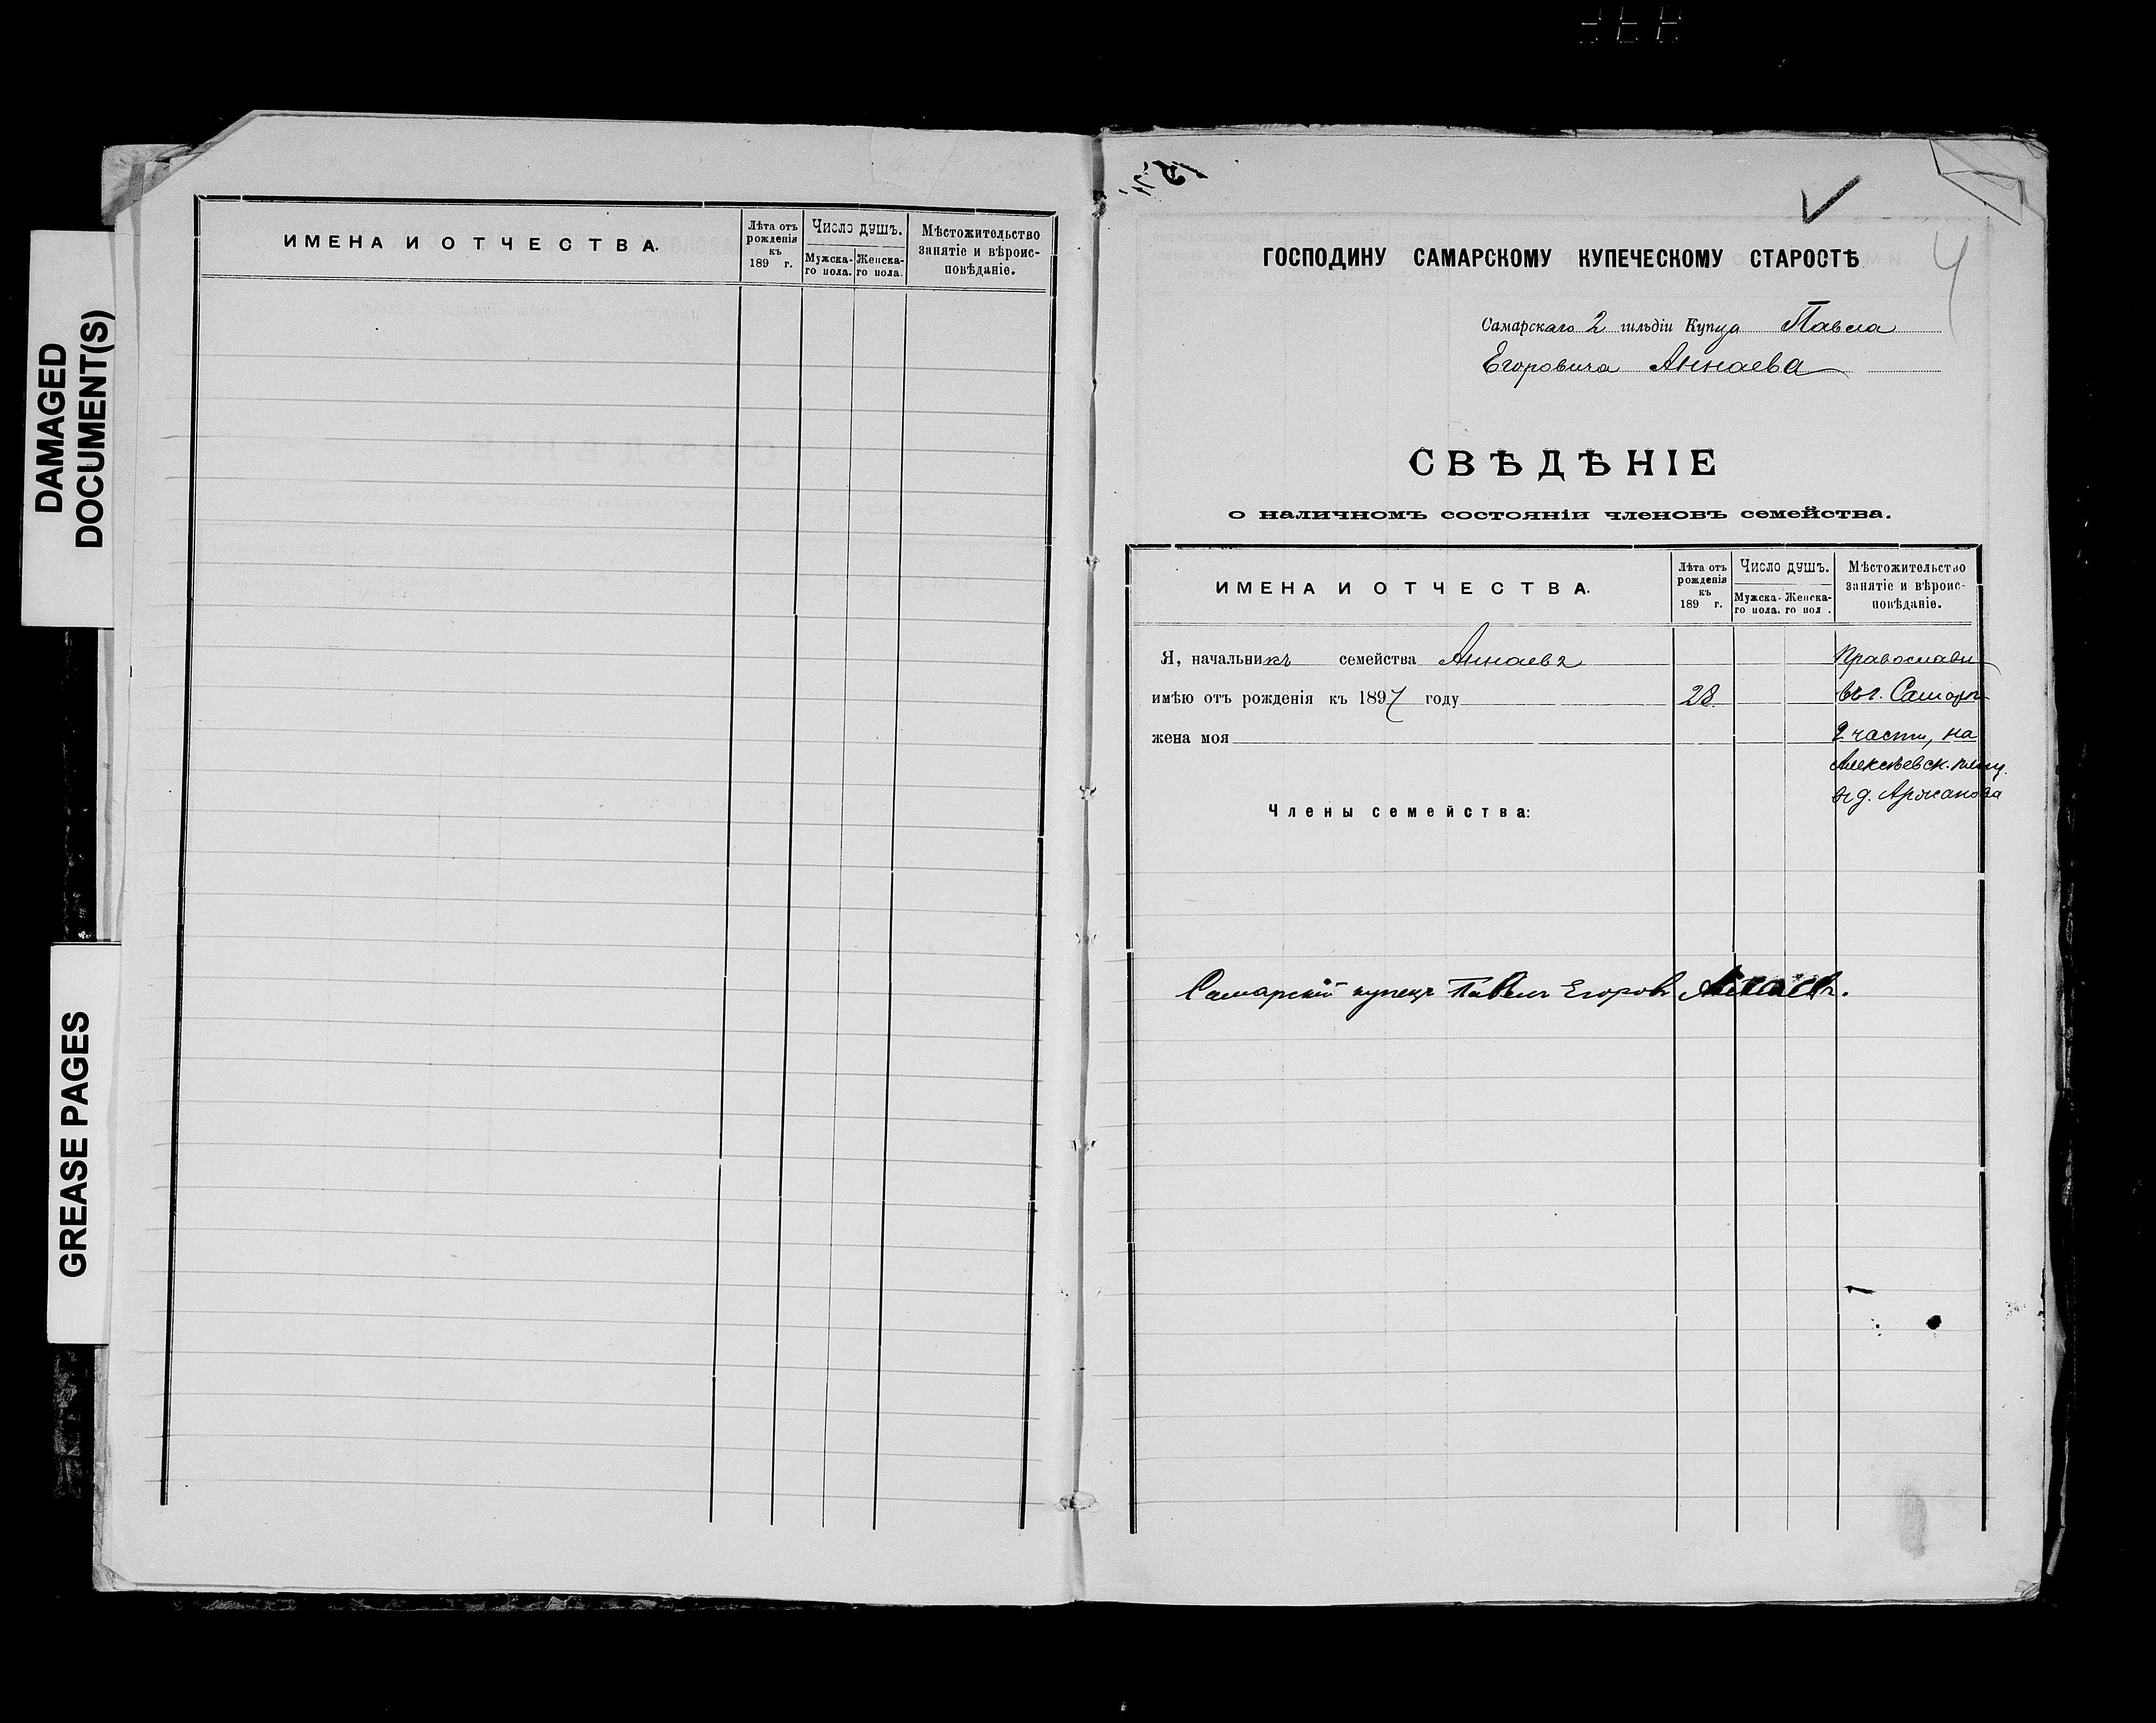 DAMAGED
DOCUMENT(S)
GREASE PAGES
ИМЕНА И ОТЧЕСТВА.
Лѣта отъ рожденія къ 189 г.
Число душъ.
Мужска-го пола.
Женска-го пола.
Мѣстожительство занятіе и вѣроис-повѣданіе.
4
ГОСПОДИНУ САМАРСКОМУ КУПЕЧЕСКОМУ СТАРОСТѢ
Самарскаго 2 гильдіи Купца Павла
Егоровича Аннаева
СВѢДѢНІЕ
о наличномъ состояніи членовъ семейства.
ИМЕНА И ОТЧЕСТВА.
Лѣта отъ рожденія къ 189 г.
Число душъ.
Мужска-го пола.
Женска-го пол .
Мѣстожительство занятіе и вѣроис-повѣданіе.
Я, начальникъ семейства Аннаевъ
Православн
имѣю отъ рожденія къ 1897 году 28.
въ г. Самарѣ
жена моя
2 части, на
Алексѣевск. площ.
въ д. Аржанова
Члены семейства:
Самарскій купецъ Павелъ Егоровъ Аннаевъ.